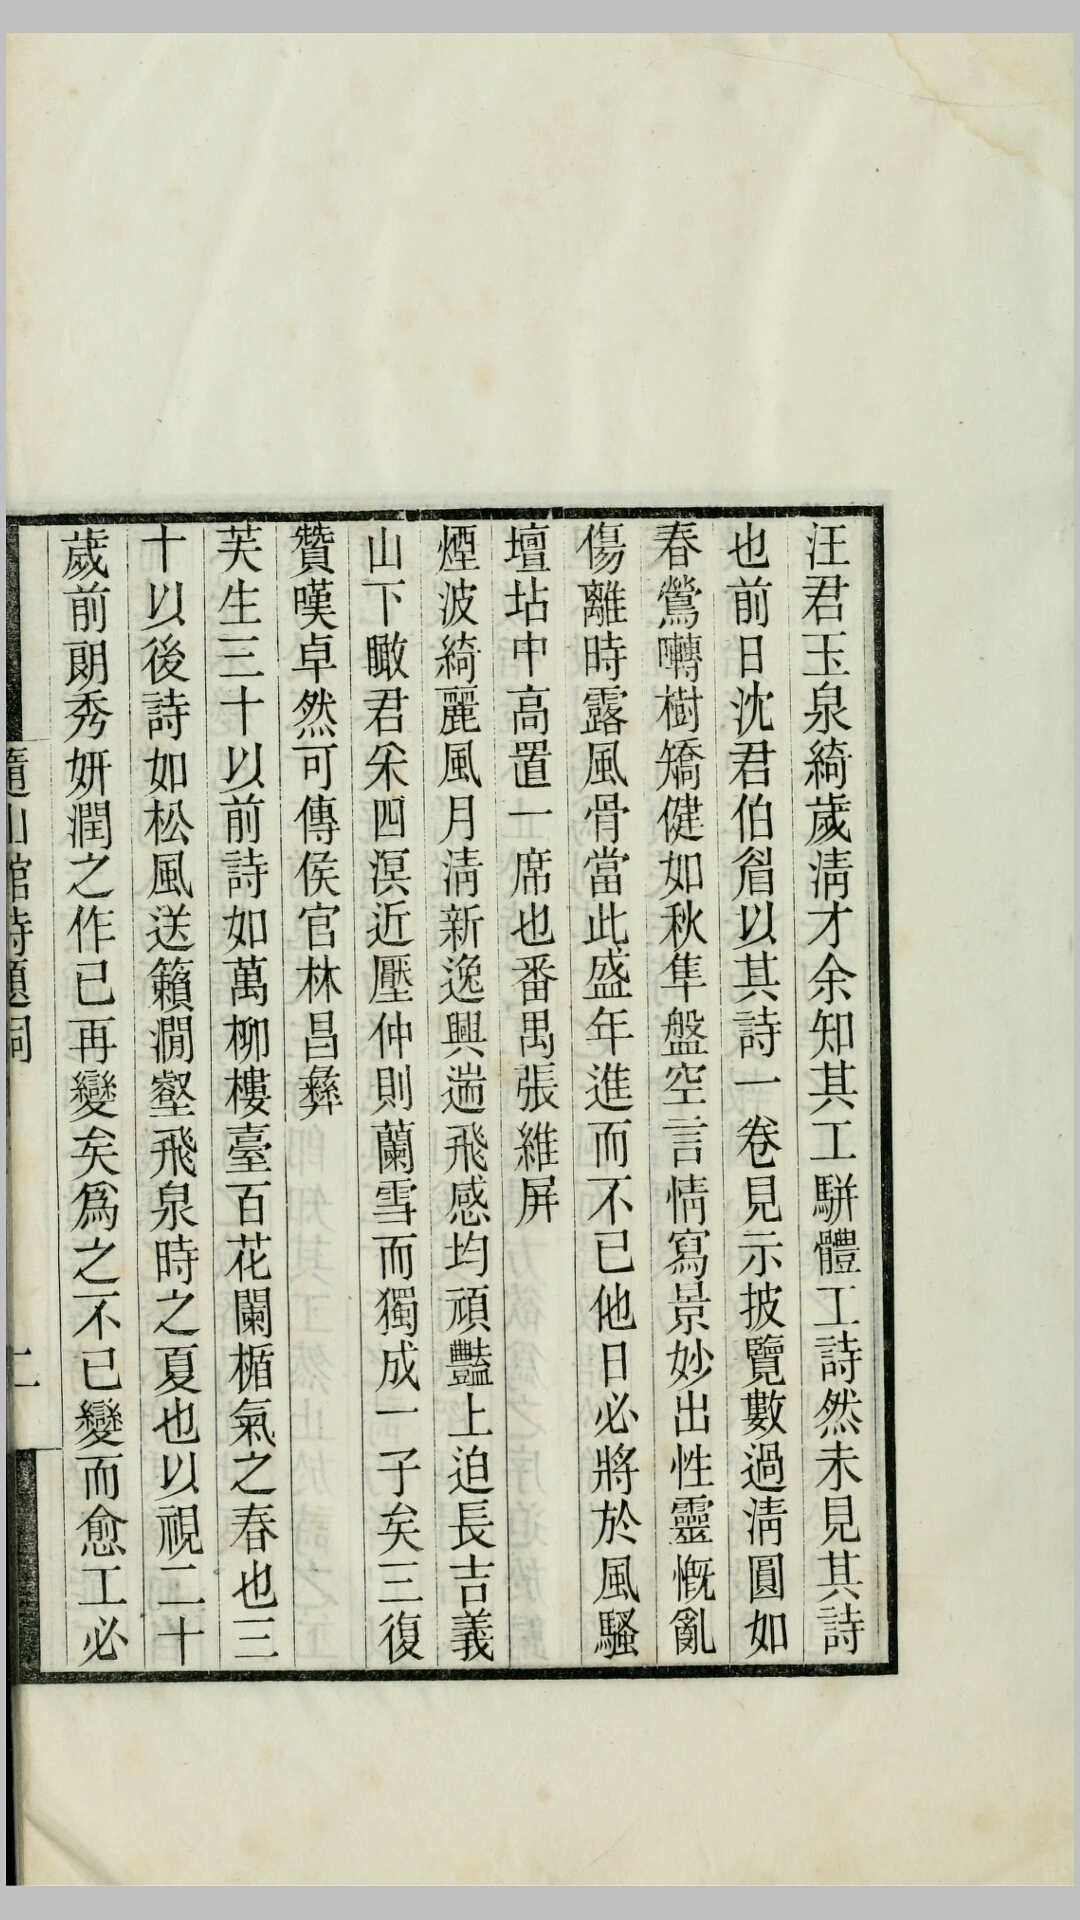 汪君玉泉綺歲淸才余知其工駢體工詩然未見其詩
也前日沈君伯眉以其詩一卷見示披覽數過淸圓如
春鶯囀樹矯健如秋隼盤空言情寫景妙出性靈慨亂
傷離時露風骨當此盛年進而不已他日必將於風騷
壇坫中高置一席也番禺張維屏
煙波綺麗風月淸新逸興遄飛感均頑豔上迫長吉義
山下瞰君采四溟近壓仲則蘭雪而獨成一子矣三復
贊嘆卓然可傳侯官林昌彝
芙生三十以前詩如萬柳樓臺百花闌楯氣之春也三
十以後詩如松風送籟澗壑飛泉時之夏也以視二十
歲前朗秀妍潤之作已再變矣爲之不已變而愈工必
隨山館詩題詞 二